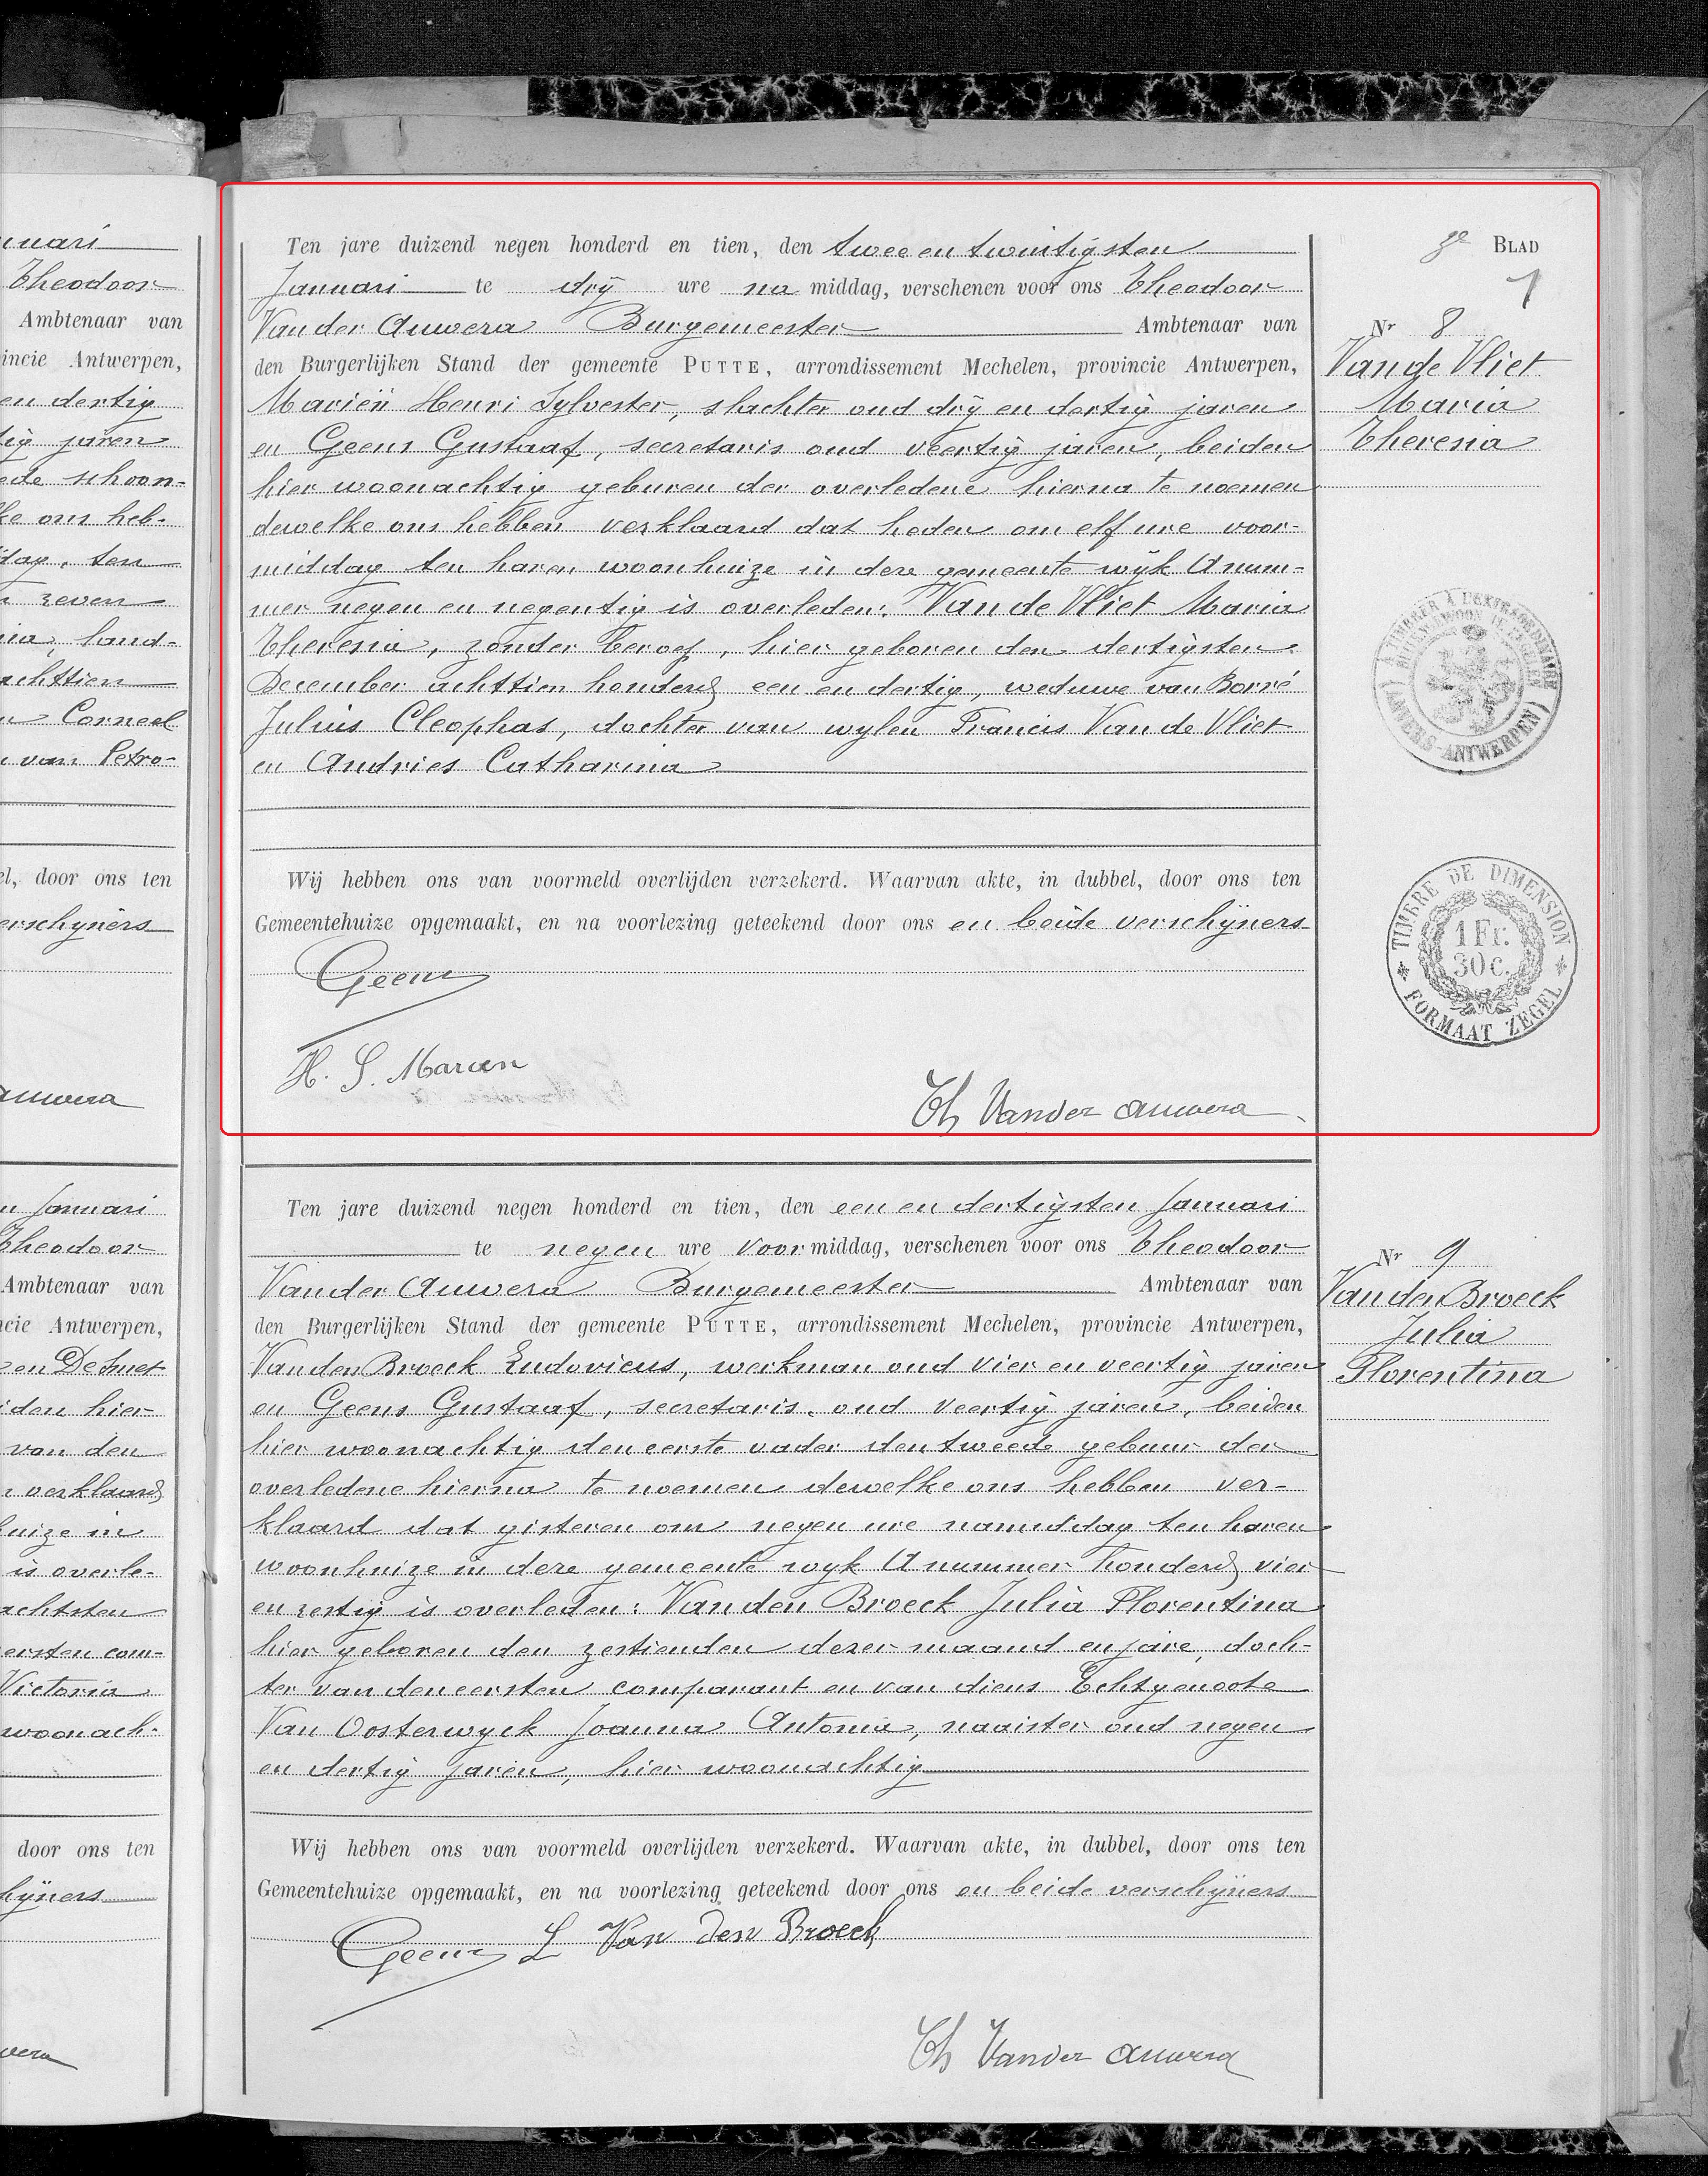 nuari
Theodoor
Ambtenaar van
incie Antwerpen,
en dertig
tig jaren
ede schoon-
ke ons heb-
dag, ten
zeven
ria, land-
achttien
Corneel
van Petro-
el, door ons ten
erschijners
auwera
Januari
Theodoor
Ambtenaar van
ncie Antwerpen,
en De Smet
iden hier
van den
verklaard
huize in
is overle-
achtsten
ersten com-
Victoria
woonach-
door ons ten
hijners
wera
Ten jare duizend negen honderd en tien, den twee en twintigsten
Januari te drij ure na middag, verschenen voor ons Theodoor
Van der Auwera Burgemeester Ambtenaar van
den Burgerlijken Stand der gemeente PUTTE, arrondissement Mechelen, provincie Antwerpen,
Mariën Henri Sylvester, slachter oud drij en dertig jaren
en Geens Gustaaf, secretaris oud veertig jaren, beiden
hier woonachtig geburen der overledene hierna te noemen
dewelke ons hebben verklaard dat heden om elf ure voor-
middag ten haren woonhuize in deze gemeente wijk A num-
mer negen en negentig is overleden: Van de Vliet Maria
Theresia, zonder beroep, hier geboren den dertigsten
December achttien honderd een en dertig, weduwe van Borré
Julius Cleophas, dochter van wylen Francis Van de Vliet
en Andries Catharina
Wij hebben ons van voormeld overlijden verzekerd. Waarvan akte, in dubbel, door ons ten
Gemeentehuize opgemaakt, en na voorlezing geteekend door ons en beide verschijners
Geens
H. S. Marien
Th Vander Auwera
BLAD
Nr 8
Van de Vliet
Maria
Theresia
A TIMBRER A L'EXTRAORDINAIRE
BUITENGEWOON TE ZEGELEN
(ANVERS-ANTWERPEN)
TIMBRE DE DIMENSION
1 Fr.
30 c.
FORMAAT ZEGEL
Ten jare duizend negen honderd en tien, den een en dertigsten Januari
te negen ure voor middag, verschenen voor ons Theodoor
Van der Auwera Burgemeester Ambtenaar van
den Burgerlijken Stand der gemeente PUTTE, arrondissement Mechelen, provincie Antwerpen,
Van den Broeck Ludovicus, werkman oud vier en veertig jaren
en Geens Gustaaf, secretaris, oud veertig jaren, beiden
hier woonachtig den eerste vader den tweede gebuur der
overledene hierna te noemen dewelke ons hebben ver-
klaard dat gisteren om negen ure namiddag ten haren
woonhuize in deze gemeente wyk A nummer honderd vier
en zestig is overleden: Van den Broeck Julia Florentina
hier geboren den zestienden dezer maand en jare, doch-
ter van den eersten comparant en van diens Echtgenoote
Van Oosterwyck Joanna Antonia, naaister oud negen
en dertig jaren, hier woonachtig
Wij hebben ons van voormeld overlijden verzekerd. Waarvan akte, in dubbel, door ons ten
Gemeentehuize opgemaakt, en na voorlezing geteekend door ons en beide verschijners
Geens L Van den Broeck
Th Vander Auwera
Nr 9
Van den Broeck
Julia
Florentina